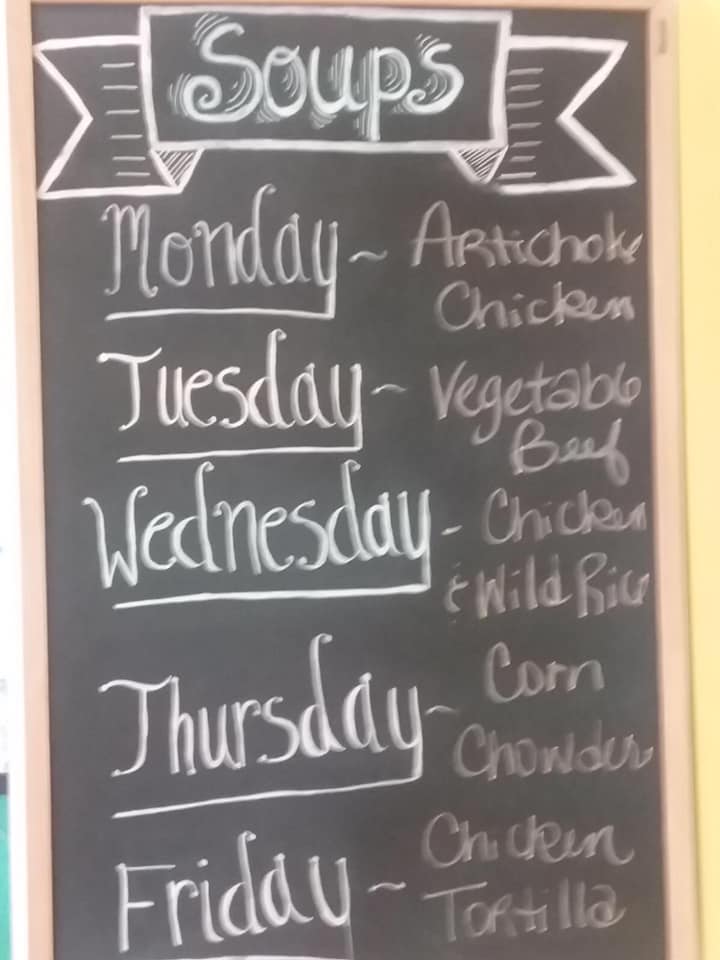 Soups
Monday ~ Artichoke
Chicken
Tuesday ~ Vegetable
Beef
Wednesday - Chicken
& Wild Rice
Thursday ~ Corn
Chowder
Friday ~ Chicken
Tortilla